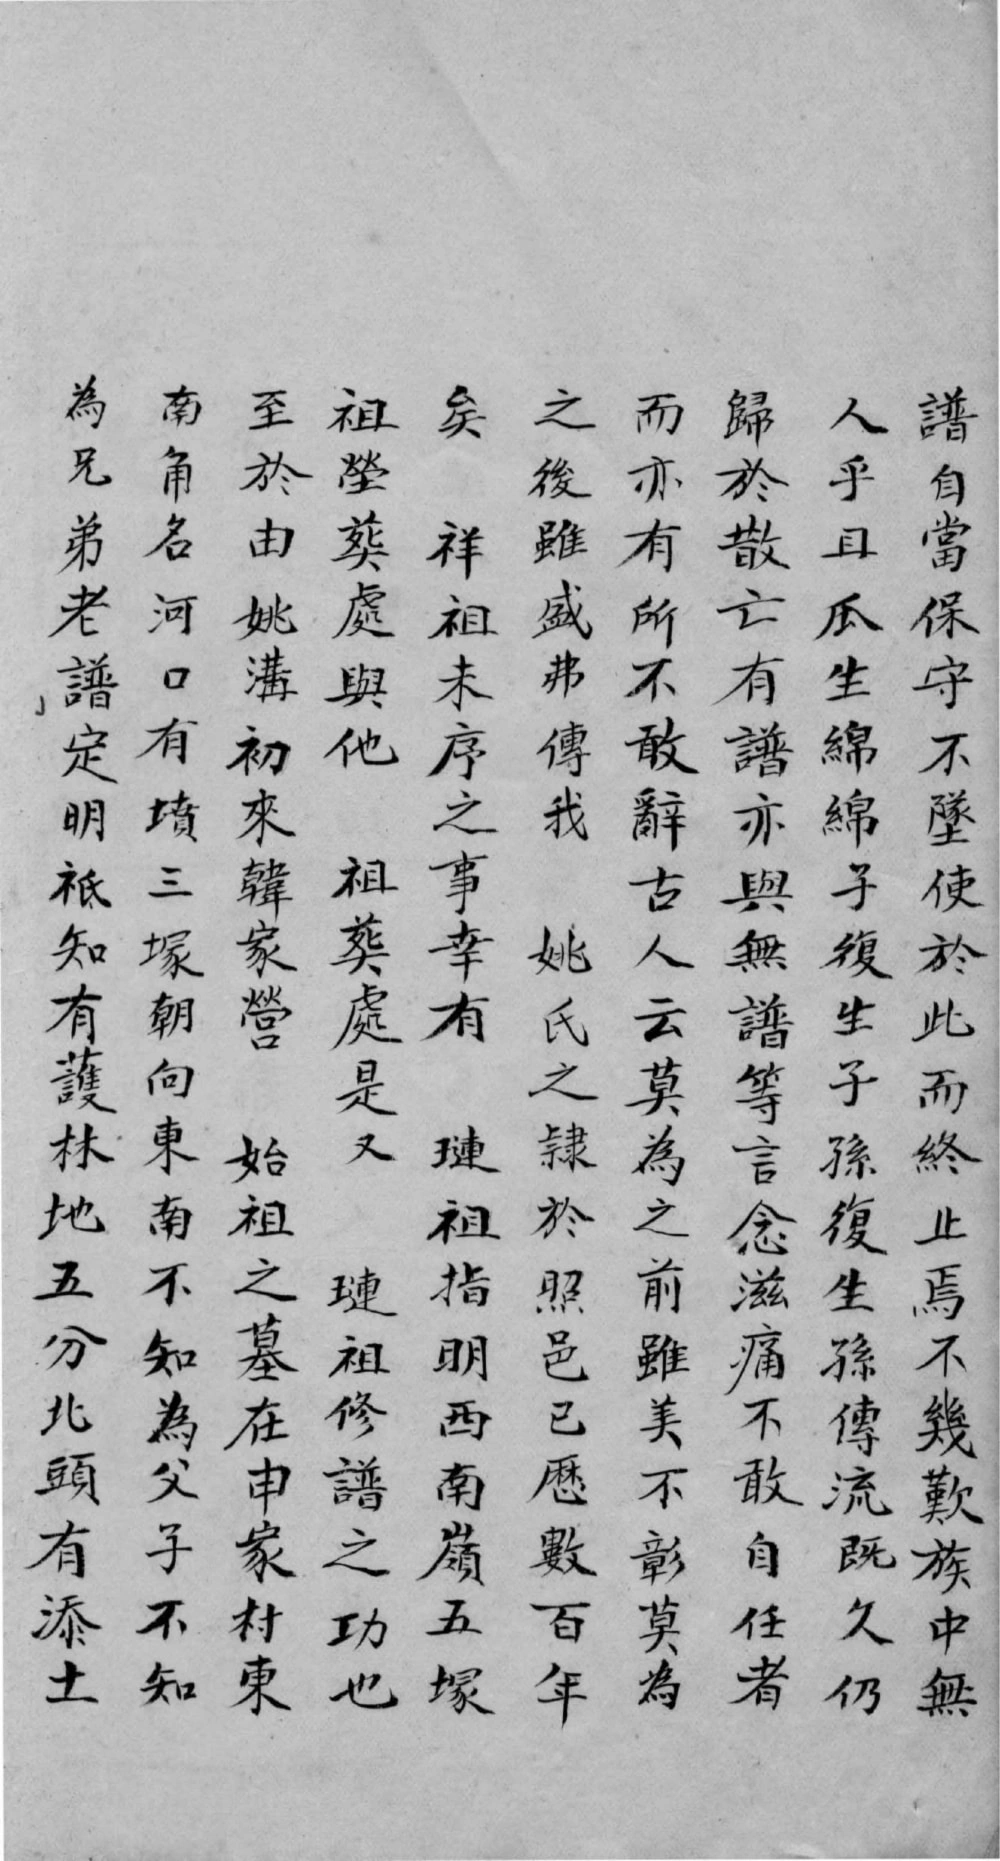 譜自當保守不墜使於此而終止焉不幾歎族中無
人乎且瓜生綿綿子復生子孫復生孫傳流既久仍
歸於散亡有譜亦與無譜等言念滋痛不敢自任者
而亦有所不敢辭古人云莫為之前雖美不彰莫為
之後雖盛弗傳我　姚氏之隸於照邑已歷數百年
矣　祥祖未序之事幸有　璉祖指明西南嶺五塚
祖塋葬處與他　祖葬處是又　璉祖修譜之功也
至於由姚溝初來韓家營　始祖之墓在申家村東
南角名河口有墳三塚朝向東南不知為父子不知
為兄弟老譜定明祇知有護林地五分北頭有添土